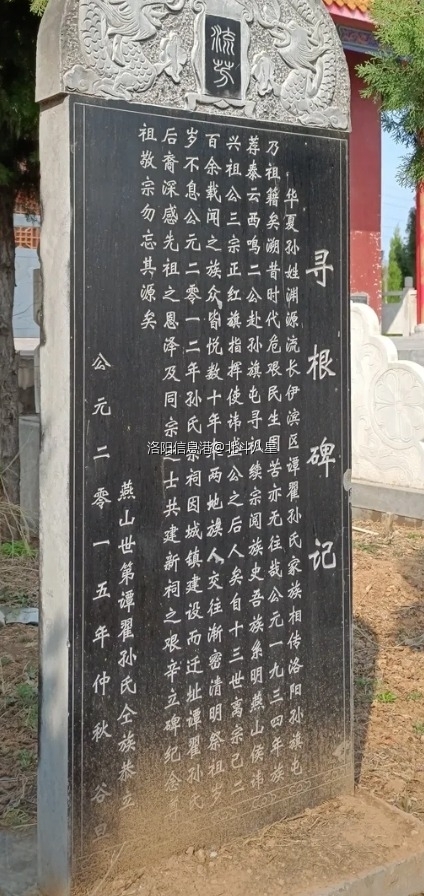 流芳
寻根碑记
华夏孙姓渊源流长伊滨区谭翟孙氏家族相传洛阳孙旗屯
乃祖籍矣溯昔时代危艰民生困苦亦无往哉公元一九三四年族
荐泰云西鸣二公赴孙旗屯寻根续宗阅族史吾族系明燕山侯讳
兴祖公三宗正红旗指挥使讳 公之后人矣自十三世离宗已二
百余载闻之族众皆悦数十年来两地族人交往渐密清明祭祖岁
岁不息公元二零一二年孙氏宗祠因城镇建设而迁址谭翟孙氏
后裔深感先祖之恩泽及同宗之士共建新祠之艰辛立碑纪念尊
祖敬宗勿忘其源矣
燕山世第谭翟孙氏仝族恭立
公元二零一五年仲秋 谷旦
洛阳信息港@北斗八星